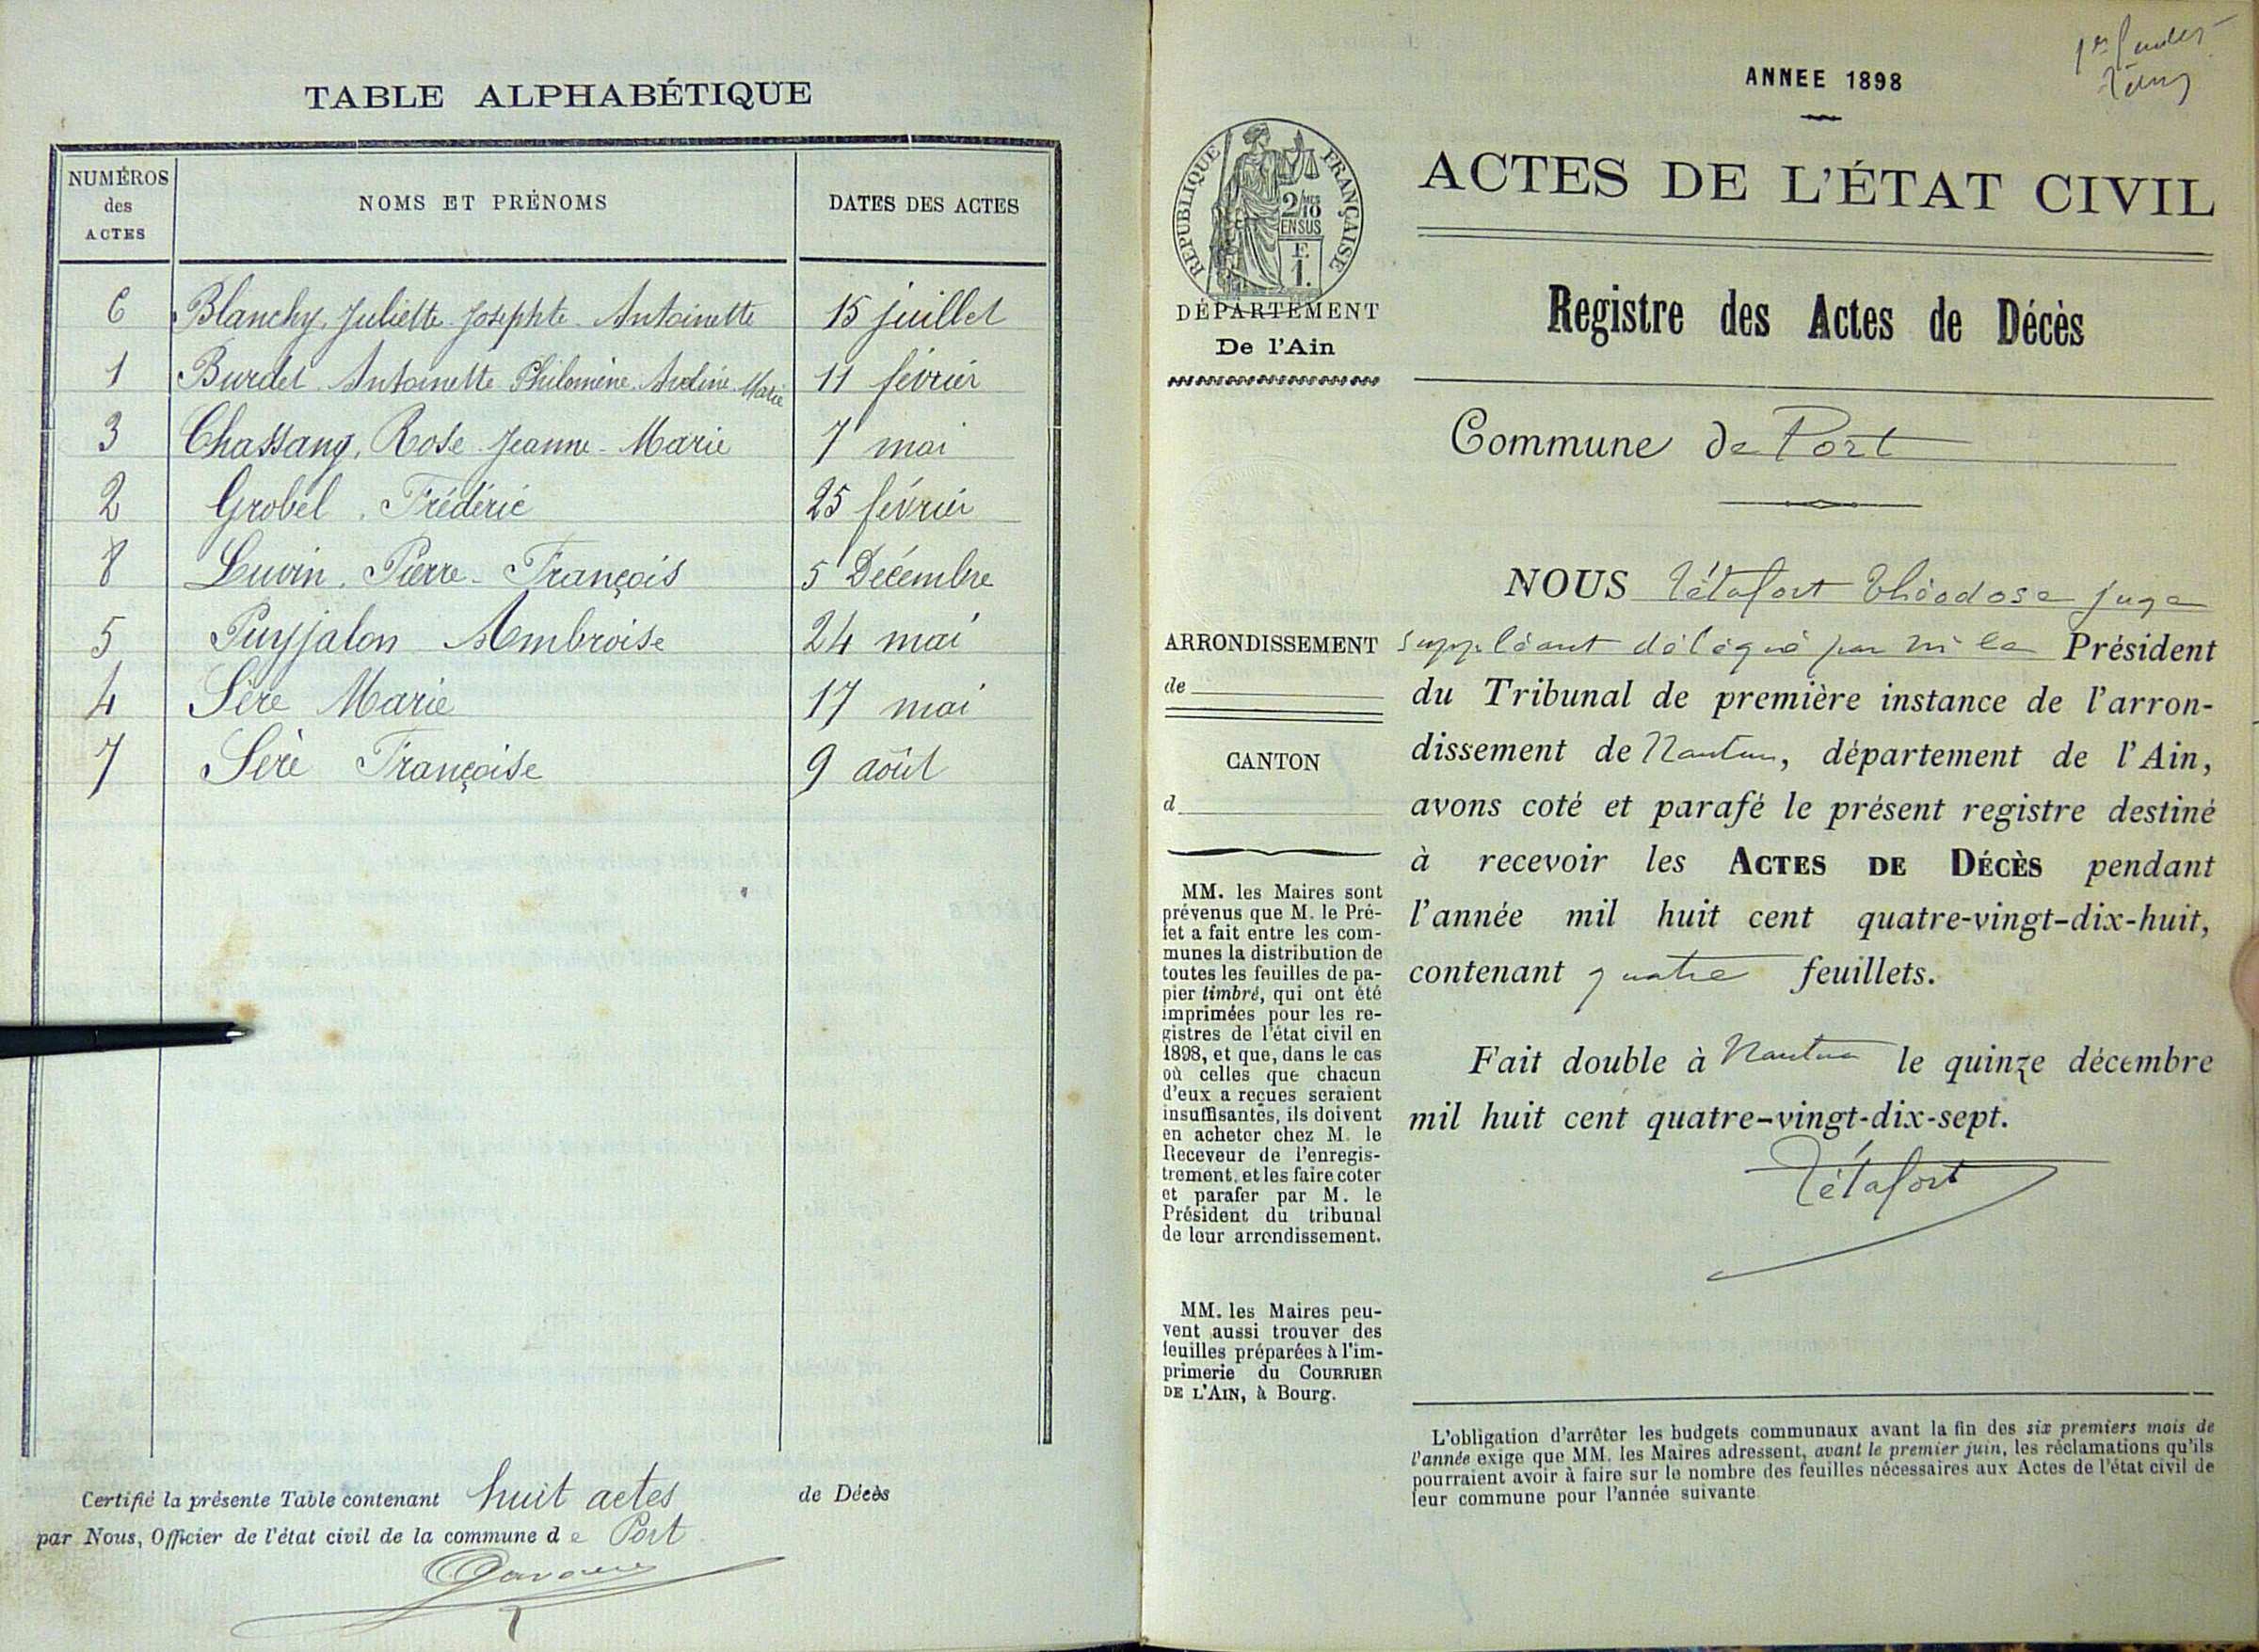 TABLE ALPHABÉTIQUE
NUMÉROS des ACTES
NOMS ET PRÉNOMS
DATES DES ACTES
6 Blanchy, Juliette Josephte Antoinette 15 juillet
1 Burdet Antoinette Philomène Marie 11 février
3 Chassang, Rose Jeanne-Marie 7 mai
2 Grobel, Frédéric 25 février
8 Luvin, Pierre-François 5 Décembre
5 Puyjalon Ambroise 24 mai
4 Sère Marie 17 mai
7 Sère Françoise 9 août
Certifié la présente Table contenant huit actes de Décès
par Nous, Officier de l'état civil de la commune de Port
ANNEE 1898
ACTES DE L'ÉTAT CIVIL
RÉPUBLIQUE FRANÇAISE
2/10
EN SUS
F
1.
DÉPARTEMENT
De l'Ain
Registre des Actes de Décès
Commune de Port
ARRONDISSEMENT
de
CANTON
d
MM. les Maires sont
prévenus que M. le Pré-
fet a fait entre les com-
munes la distribution de
toutes les feuilles de pa-
pier timbré, qui ont été
imprimées pour les re-
gistres de l'état civil en
1898, et que, dans le cas
où celles que chacun
d'eux a reçues seraient
insuffisantes, ils doivent
en acheter chez M. le
Receveur de l'enregis-
trement, et les faire coter
et parafer par M. le
Président du tribunal
de leur arrondissement.
MM. les Maires peu-
vent aussi trouver des
feuilles préparées à l'im-
primerie du COURRIER
DE L'AIN, à Bourg.
NOUS Tétafort Théodose juge
suppléant délégué par Mr le Président
du Tribunal de première instance de l'arron-
dissement de Nantua, département de l'Ain,
avons coté et parafé le présent registre destiné
à recevoir les ACTES DE DÉCÈS pendant
l'année mil huit cent quatre-vingt-dix-huit,
contenant quatre feuillets.
Fait double à Nantua le quinze décembre
mil huit cent quatre-vingt-dix-sept.
Tétafort
L'obligation d'arrêter les budgets communaux avant la fin des six premiers mois de
l'année exige que MM. les Maires adressent, avant le premier juin, les réclamations qu'ils
pourraient avoir à faire sur le nombre des feuilles nécessaires aux Actes de l'état civil de
leur commune pour l'année suivante